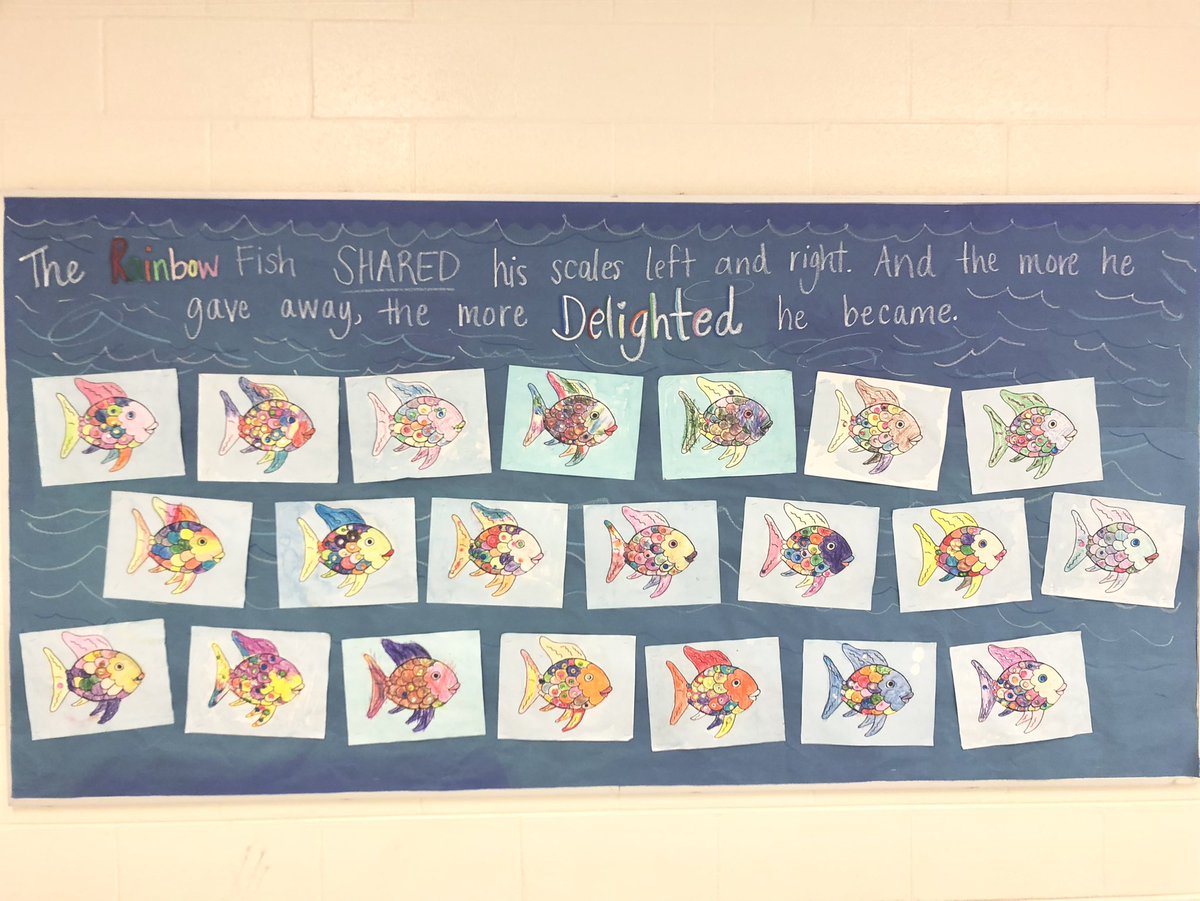 The Rainbow Fish SHARED his scales left and right. And the more he
gave away, the more Delighted he became.